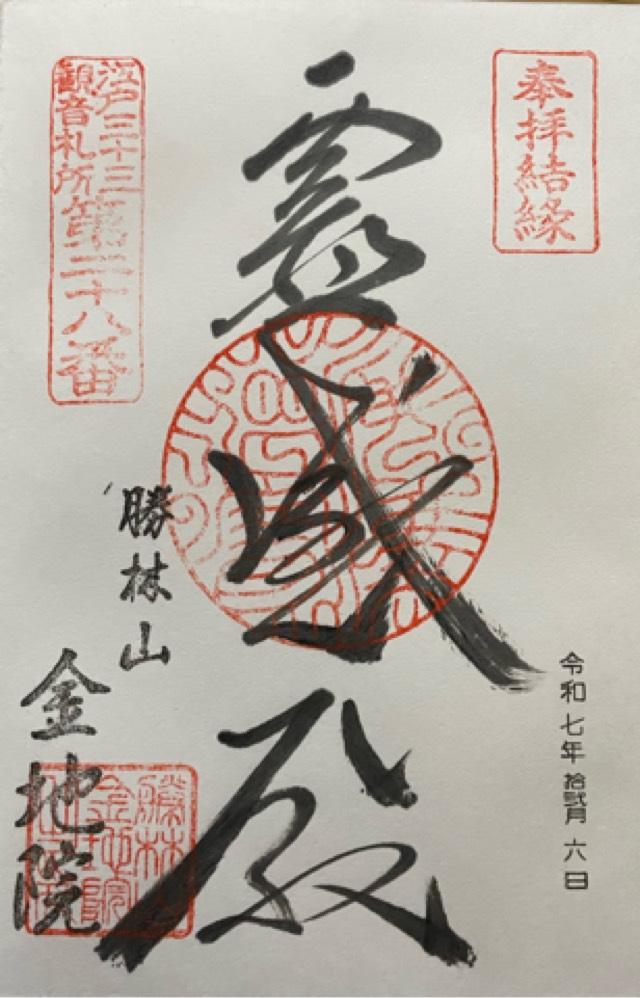 奉拝結縁
令和七年拾弐月六日
霊感殿
江戸三十三
観音札所
第二十八番
勝林山
金地院
勝林
金地院